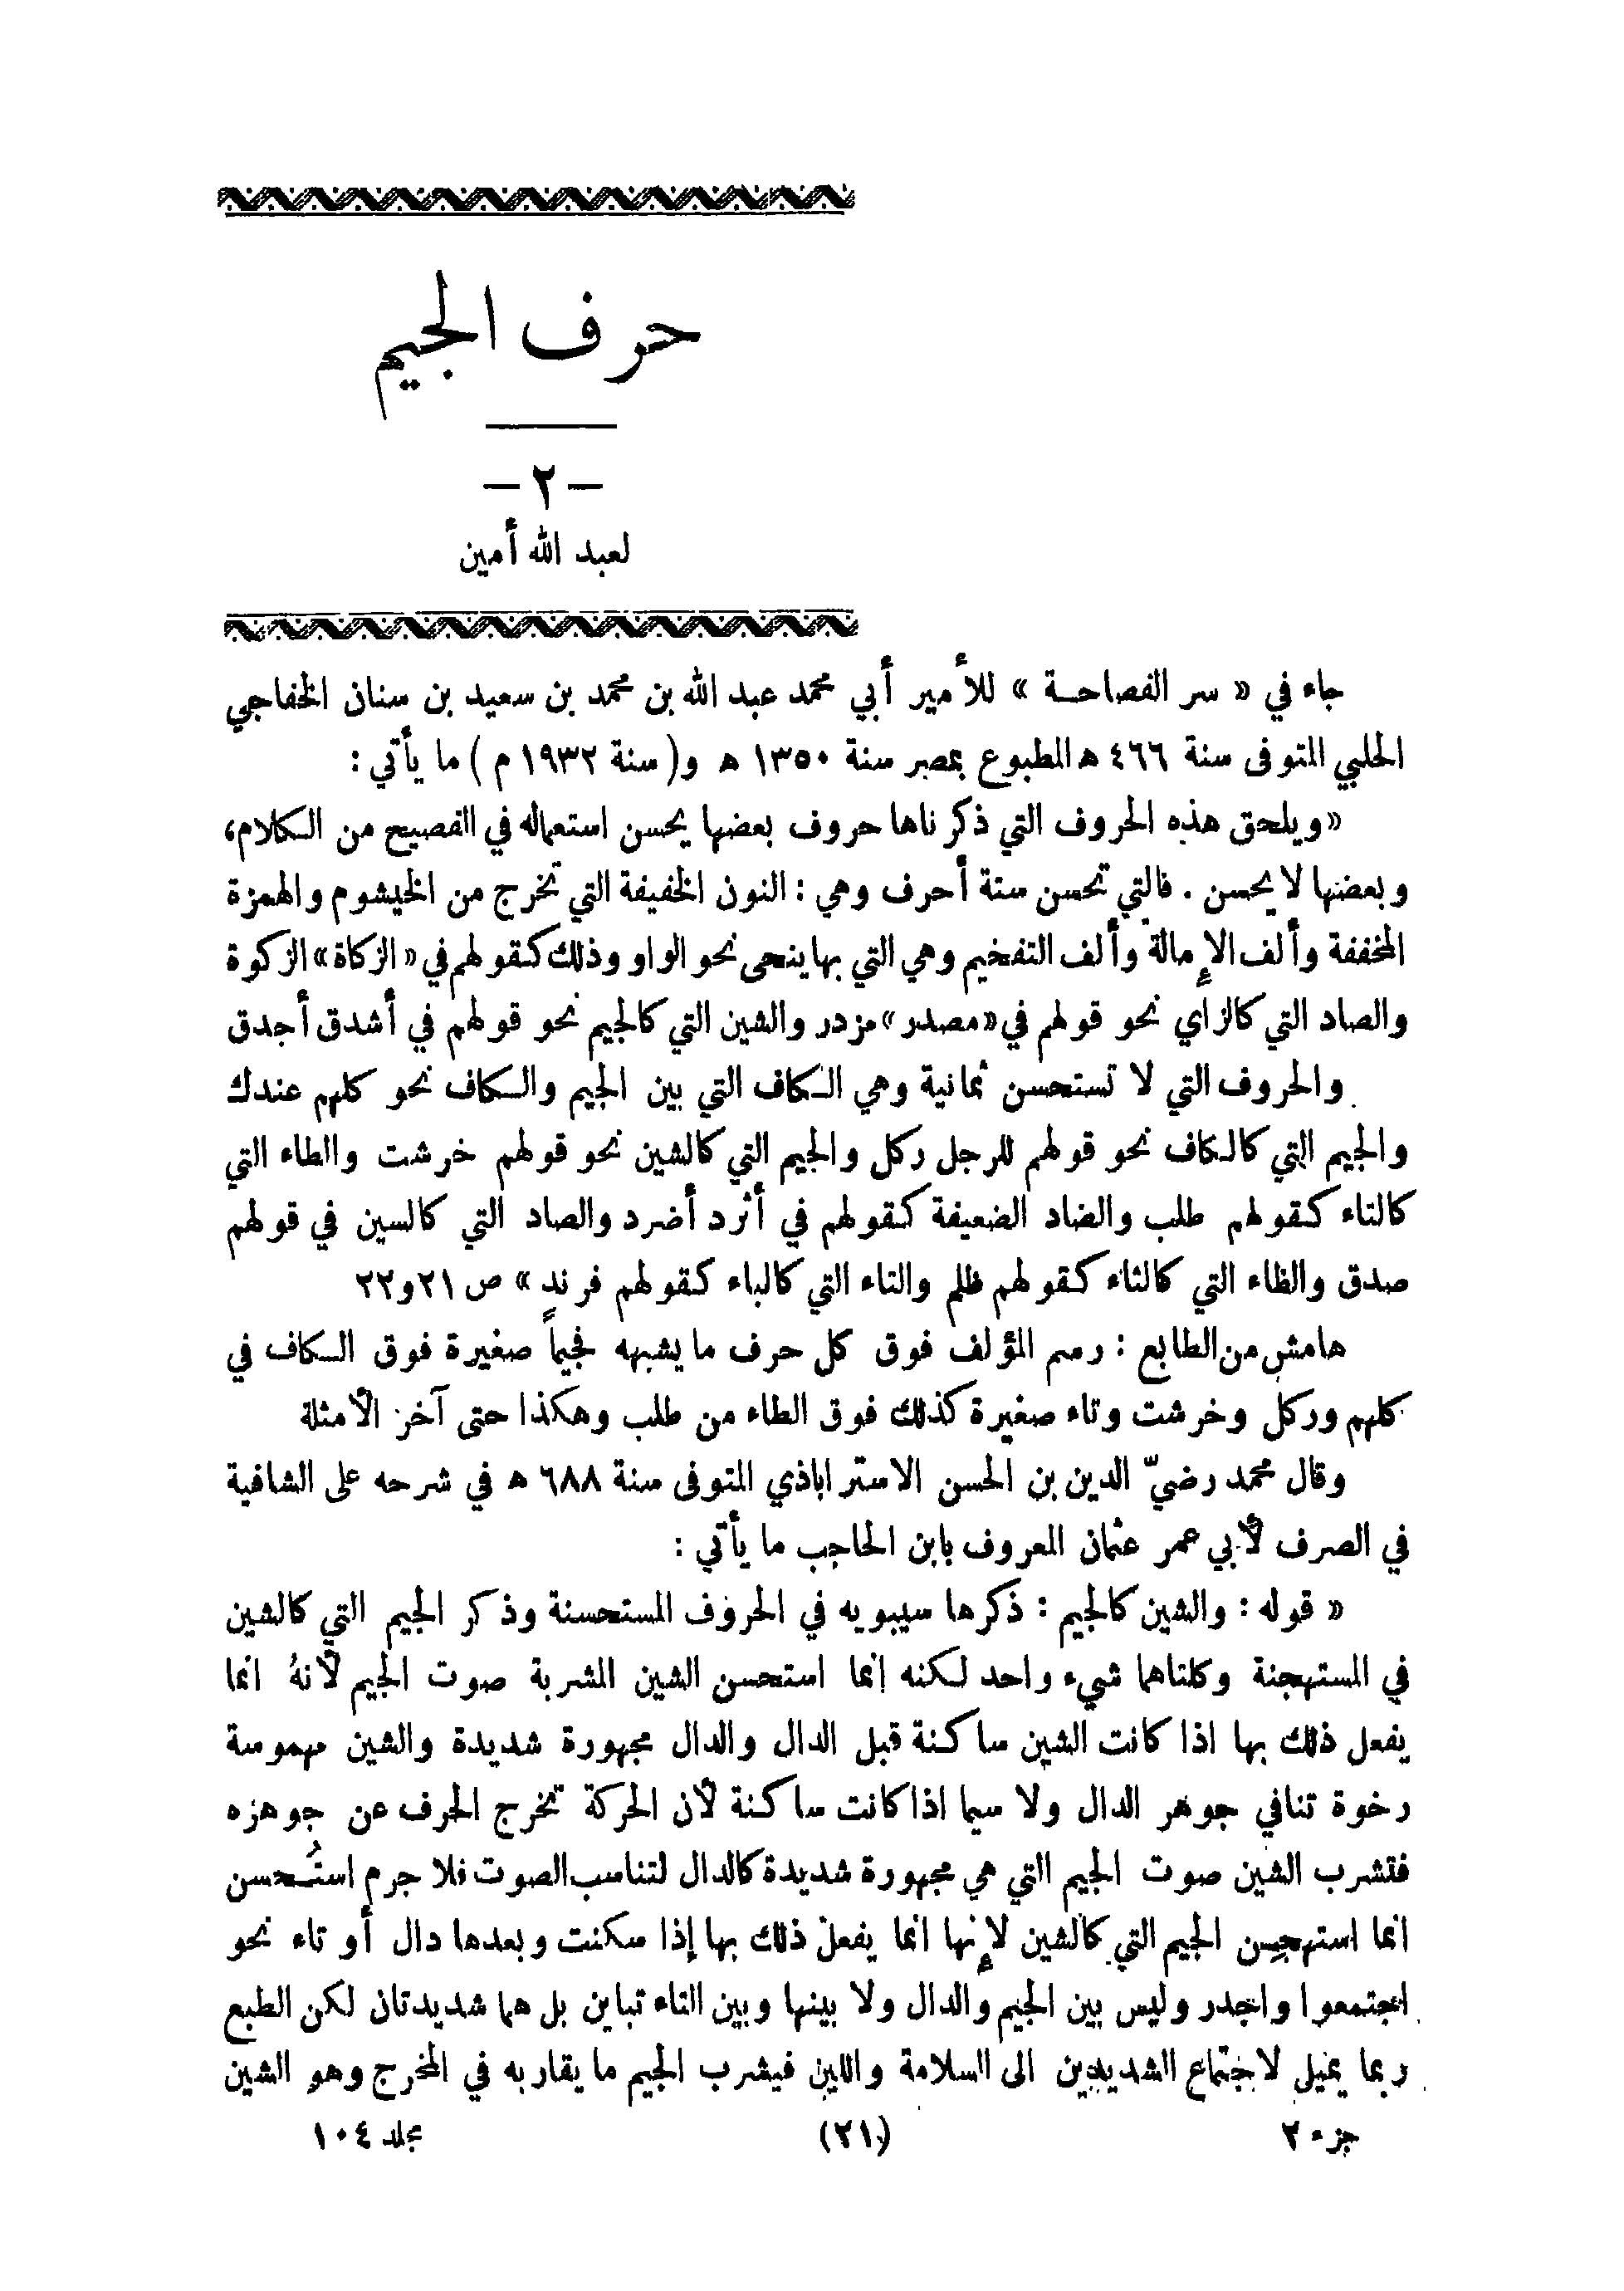 حرف الجيم
— ٢ —
لعبد الله أمين
جاء في « سر الفصاحة » للأمير أبي محمد عبد الله بن محمد بن سعيد بن سنان الخفاجي
الحلبي المتوفى سنة ٤٦٦ ه المطبوع بمصر سنة ١٣٥٠ ه و( سنة ١٩٣٢ م ) ما يأتي :
« ويلحق هذه الحروف التي ذكرناها حروف بعضها يحسن استعماله في الفصيح من الكلام ،
وبعضها لا يحسن . فالتي تحسن ستة أحرف وهي : النون الخفيفة التي تخرج من الخيشوم والهمزة
المخففة وألف الإمالة وألف التفخيم وهي التي بها ينحى نحو الواو وذلك كقولهم في « الزكاة » الزكوة
والصاد التي كالزاي نحو قولهم في « مصدر » مزدر والشين التي كالجيم نحو قولهم في أشدق أجدق
والحروف التي لا تستحسن ثمانية وهي الكاف التي بين الجيم والكاف نحو كلهم عندك
والجيم التي كالكاف نحو قولهم للرجل ركل والجيم التي كالشين نحو قولهم خرشت والطاء التي
كالتاء كقولهم طلب والضاد الضعيفة كقولهم في أثرد أضرد والصاد التي كالسين في قولهم
صدق والظاء التي كالثاء كقولهم ظلم والتاء التي كالباء كقولهم فرند » ص ٢١ و ٢٢
هامش من الطابع : رسم المؤلف فوق كل حرف ما يشبهه فجيماً صغيرة فوق الكاف في
كلهم وركل وخرشت وتاء صغيرة كذلك فوق الطاء من طلب وهكذا حتى آخر الأمثلة
وقال محمد رضيّ الدين بن الحسن الاستراباذي المتوفى سنة ٦٨٨ ه في شرحه على الشافية
في الصرف لأبي عمر عثمان المعروف بابن الحاجب ما يأتي :
« قوله : والشين كالجيم : ذكرها سيبويه في الحروف المستحسنة وذكر الجيم التي كالشين
في المستهجنة وكلتاهما شيء واحد لكنه إنما استحسن الشين المشربة صوت الجيم لأنهُ انما
يفعل ذلك بها اذا كانت الشين ساكنة قبل الدال والدال مجهورة شديدة والشين مهموسة
رخوة تنافي جوهر الدال ولا سيما اذا كانت ساكنة لأن الحركة تخرج الحرف عن جوهره
فتشرب الشين صوت الجيم التي هي مجهورة شديدة كالدال لتناسب الصوت فلا جرم استُحسن
انما استهجن الجيم التي كالشين لإنها انما يفعل ذلك بها إذا سكنت وبعدها دال أو تاء نحو
اجتمعوا واجدر وليس بين الجيم والدال ولا بينها وبين التاء تباين بل هما شديدتان لكن الطبع
ربما يميل لاجتماع الشديدين الى السلامة واللين فيشرب الجيم ما يقاربه في المخرج وهو الشين
جزء ٢ (٢١) مجلد ١٠٤